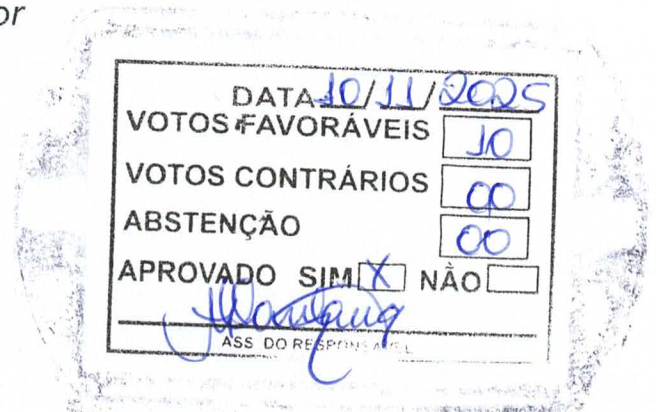 or
DATA 10/11/2025
VOTOS FAVORÁVEIS 10
VOTOS CONTRÁRIOS 00
ABSTENÇÃO 00
APROVADO SIM X NÃO
ASS DO RESPONSAVEL